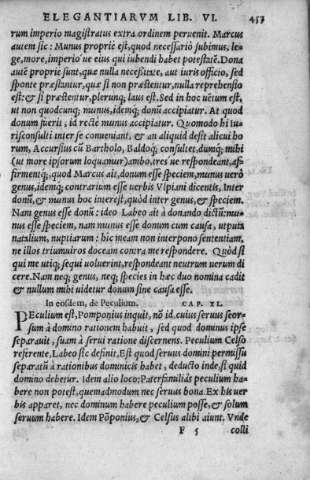 ELEGANTIARVM LIB. VI. 457
rum imperio magistratus extra ordinem peruenit. Marcus
autem sic: Munus propriè est, quod necessariò subimus, le-
ge, more, imperio´ue eius qui iubendi habet potestatē. Dona
autē propriè sunt, quæ nulla necessitate, aut iuris officio, sed
spontè præstantur, quæ si non præstentur, nulla reprehensio
est: & si præstentur, plerunq; laus est. Sed in hoc uētum est,
ut non quodcunq; munus, idemq; donū accipiatur. At quod
donum fuerit, id rectè munus accipiatur. Quomodo hi iu-
risconsulti inter se conueniant, & an aliquid desit alicui ho
rum, Accursius cū Bartholo, Baldoq; consultet, dumq; mihi
(ut more ipsorum loquamur) ambo, tres´ue respondeant, af-
firmentq́; quod Marcus ait, donum esse speciem, munus uerò
genus, idemq́; contrarium esse uerbis Vlpiani dicentis, Inter
donū, & munus hoc interest, quòd inter genus, & speciem.
Nam genus esse donū: ideo Labeo ait à donando dictū: mu-
nus esse speciem, nam munus esse donum cum causa, utputa
natalium, nuptiarum: hic meam non interpono sententiam,
ne illos triumuiros doceam contra me respondere. Quòd si
qui me utiq; sequi uoluerint, respondeant neutrum uerum di
cere. Nam neq; genus, neq; species in hac duo nomina cadit
& nullum mihi uidetur donum sine causa esse.
In eosdem, de Peculium. CAP. XL.
PEculium est, Pomponius inquit, nō id, cuius seruus seor-
sum à domino rationem habuit, sed quod dominus ipse
separauit, suam à serui ratione discernens. Peculium Celso
referente, Labeo sic definit, Est quod seruus domini permissu
separatū à rationibus dominicis habet, deducto inde, si quid
domino debetur. Idem alio loco: Paterfamiliâs peculium ha-
bere non potest, quemadmodum nec seruus bona. Ex his uer
bis apparet, nec dominum habere peculium posse, & solum
seruum habere. Idem Pōponius, & Celsus alibi aiunt. Vnde
F 5 colli